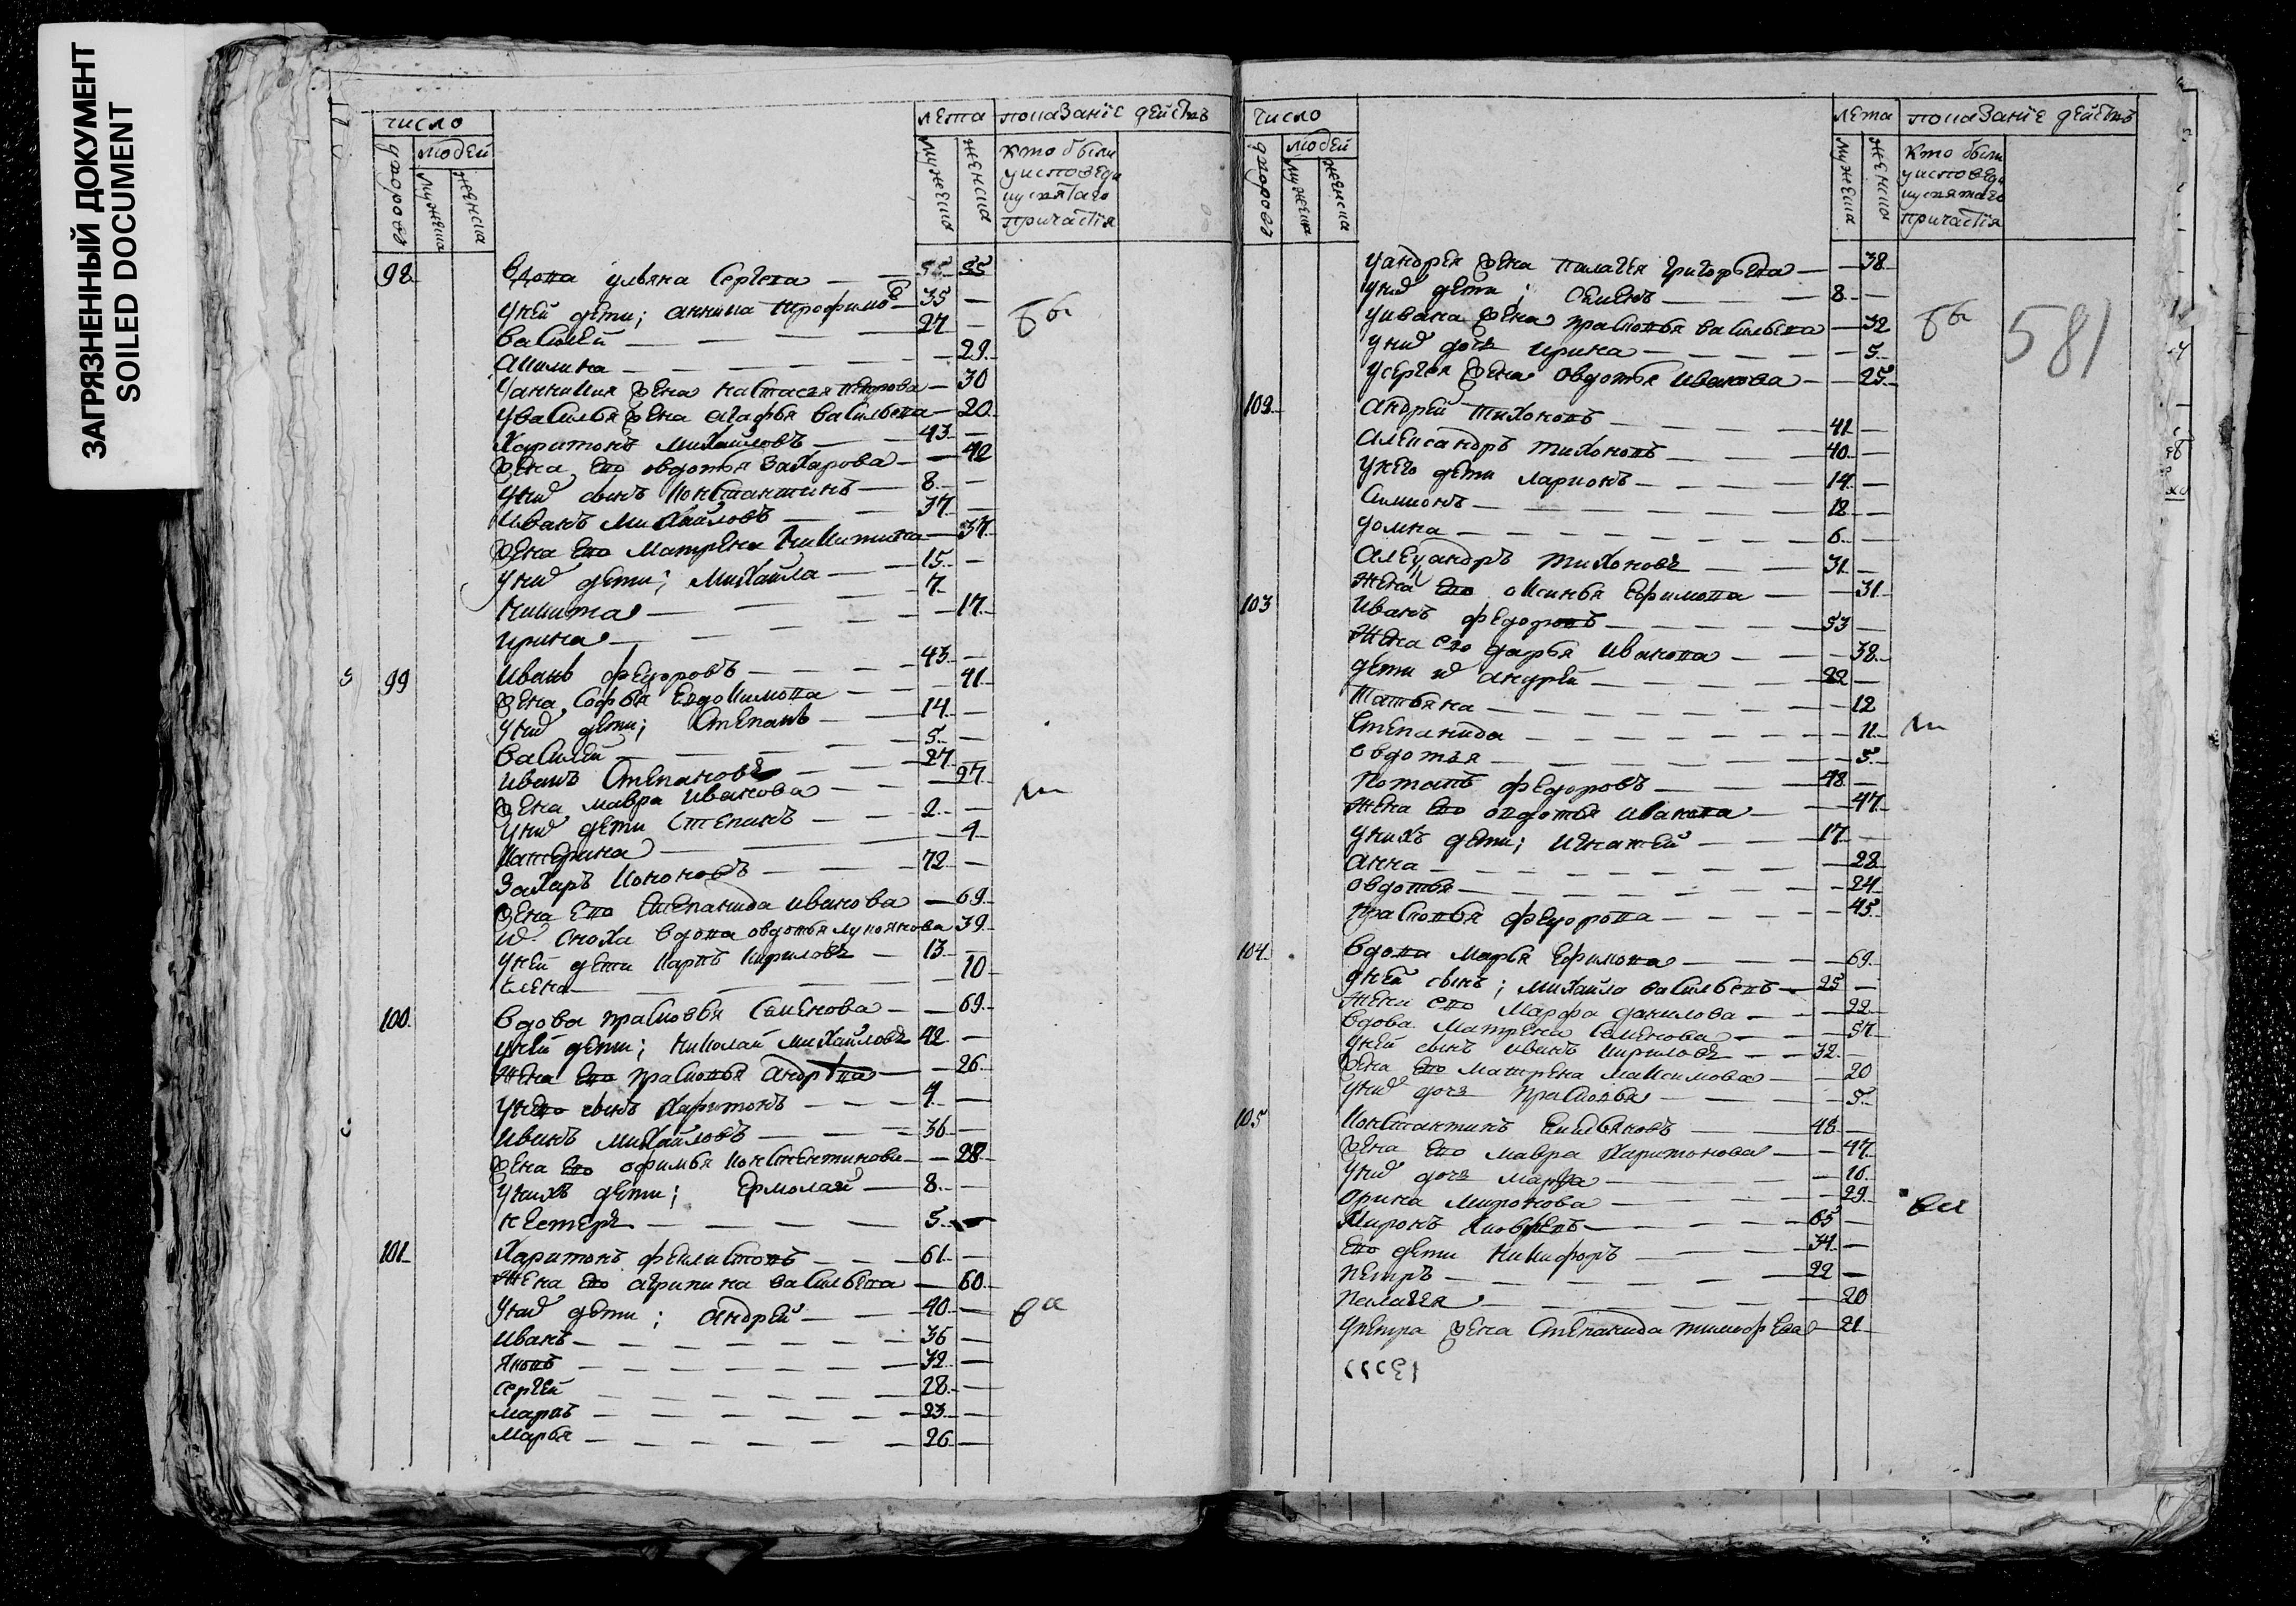 ЗАГРЯЗНЕННЫЙ ДОКУМЕНТ
SOILED DOCUMENT
число
лета показанїе действъ
дворовъ
людей
мужеска
женска
мужеска
женска
кто были
уисповеди
исвятаго
причастїя
98 вдова ульяна Сергеева 55
уней дети; аникиа трофимов 35
василей 27 бы
акилина 29
уаникия жена настасея петрова 30
увасилья жена агафья васильева 20
Харитонъ михайловъ 43
жена ево овдотья захарова 42
уних сынъ константинъ 8
иванъ михайловъ 37
жена ево матрена никитина 37
уних дети; михаила 15
никита 7
ирина 17
99 иванъ федоровъ 43
жена софья евдокимова 41
уних дети; степанъ 14
василей 5
иванъ степановъ 27
жена мавра иванова 27
уних дети степанъ 2
катерина 4
захаръ кононовъ 72
жена ево степанида иванова 69
их сноха вдова овдотья лукоянова 39
уней дети карпъ кириловъ 13
елена 10
100 вдова прасковья семенова 69
уней дети; николай михайловъ 42
жена ево прасковья андрѣва 26
унево сынъ харитонъ 4
иванъ михайловъ 36
жена ево офимья константинова 28
унихъ дети; ермолай 8
нестеръ 5
101 харитонъ феклистовъ 61
жена ево агрипина васильева 60
уних дети; андрей 40
иванъ 36
яковъ 32
сергей 28
маркъ 23
марья 26
число
лета показанїе действъ
дворовъ
людей
мужеска
женска
мужеска
женска
кто были
уисповеди
исвятаго
причастїя
уандрея жена палагея григорьева 38
уних дети; семенъ 8
уивана жена прасковья васильева 32 бы
581
уних дочь ирина 5
усергея жена овдотья иванова 25
102 андрей тихоновъ 41
александръ тихоновъ 40
унего дети ларионъ 14
симионъ 12
домна 6
александръ тихоновъ 31
жена ево оксинья ефимова 31
103 иванъ федоровъ 53
жена его дарья иванова 38
дети их андрей 22
татьяна 12
степанида 11
овдотья 5
потапъ федоровъ 48
жена ево овдотья иванова 47
унихъ дети; игнатей 17
анна 28
овдотья 24
прасковья федорова 45
104 вдова марья ефимова 69
уней сынъ; михаила васильевъ 25
жена ево марфа данилова 22
вдова матрена семенова 57
уней сынъ иванъ кириловъ 32
жена ево матрена максимова 20
уних дочь прасковья 5
105 константинъ емельяновъ 48
жена ево мавра харитонова 47
уних дочь марфа 16
орина миронова 29
миронъ 65
ево дети никифоръ 34
петръ 22
палагея 20
упетра жена степанида тимофеева 21